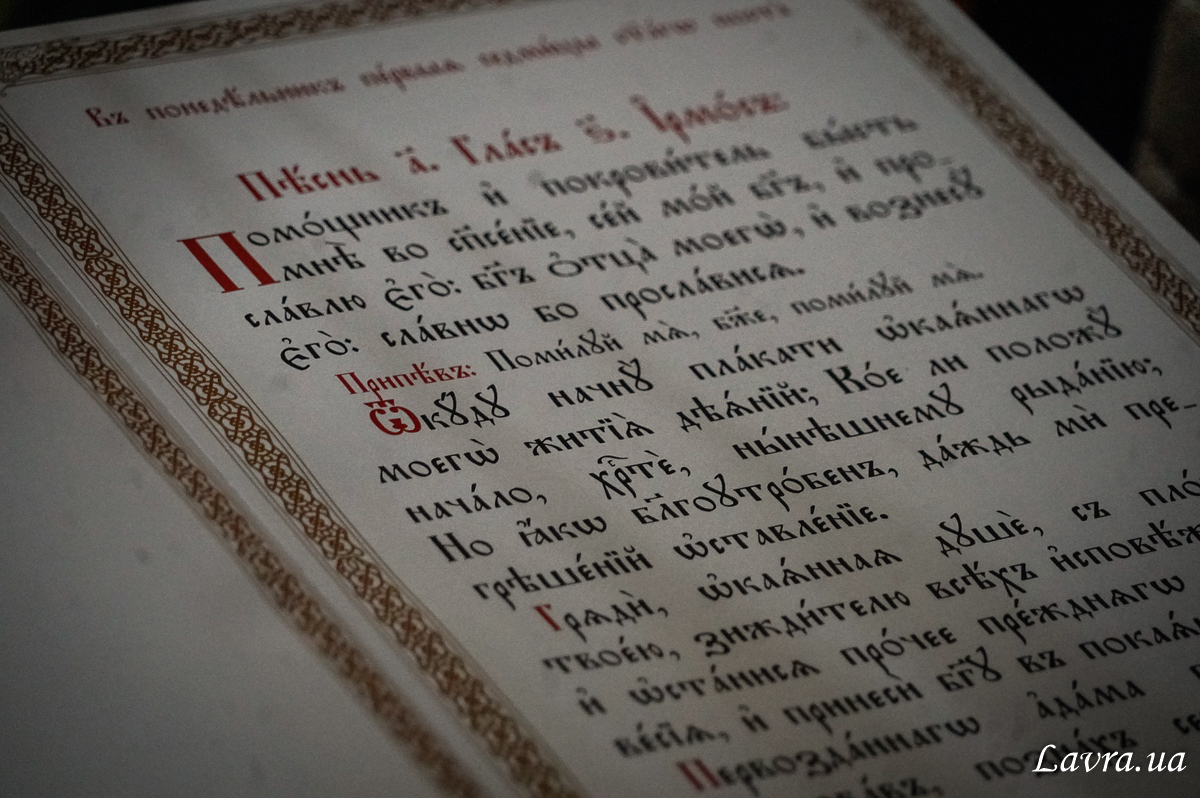 Въ понедѣ́льникъ пе́рвыѧ седми́цы свѧта́гѡ поста̀
Пѣ́снь а҃. Гла́съ ѕ҃. І҆рмо́съ:
Помо́щникъ и҆ покрови́тель бы́сть
мнѣ̀ во сп҃се́нїе, се́й мо́й бг҃ъ, и҆ про-
сла́влю є҆го̀: бг҃ъ ѻ҆тца̀ моегѡ̀, и҆ вознесꙋ̀
є҆го̀: сла́внѡ бо просла́висѧ.
Припѣ́въ: Поми́лꙋй мѧ̀, бж҃е, поми́лꙋй мѧ̀.
Ѿкꙋ́дꙋ начнꙋ̀ пла́кати ѡ҆каѧ́ннагѡ
моегѡ̀ житїѧ̀ дѣѧ́нїй; Ко́е ли положꙋ̀
нача́ло, хрⷭ҇тѐ, ны́нѣшнемꙋ̀ рыда́нїю;
Но ꙗ҆́кѡ бл҃гоꙋтро́бенъ, да́ждь мѝ пре-
грѣше́нїй ѡ҆ставле́нїе.
Грѧдѝ, ѡ҆каѧ́ннаѧ дꙋшѐ, съ пло́
твое́ю, зижди́телю всѣ́хъ и҆сповѣ́ж
и҆ ѡ҆ста́нисѧ про́чее пре́ждиѧгѡ
ве́сїѧ, и҆ принесѝ бг҃ꙋ въ покаѧ́
Первозда́ннагѡ а҆да́ма
позна́хъ се
Lavra.ua